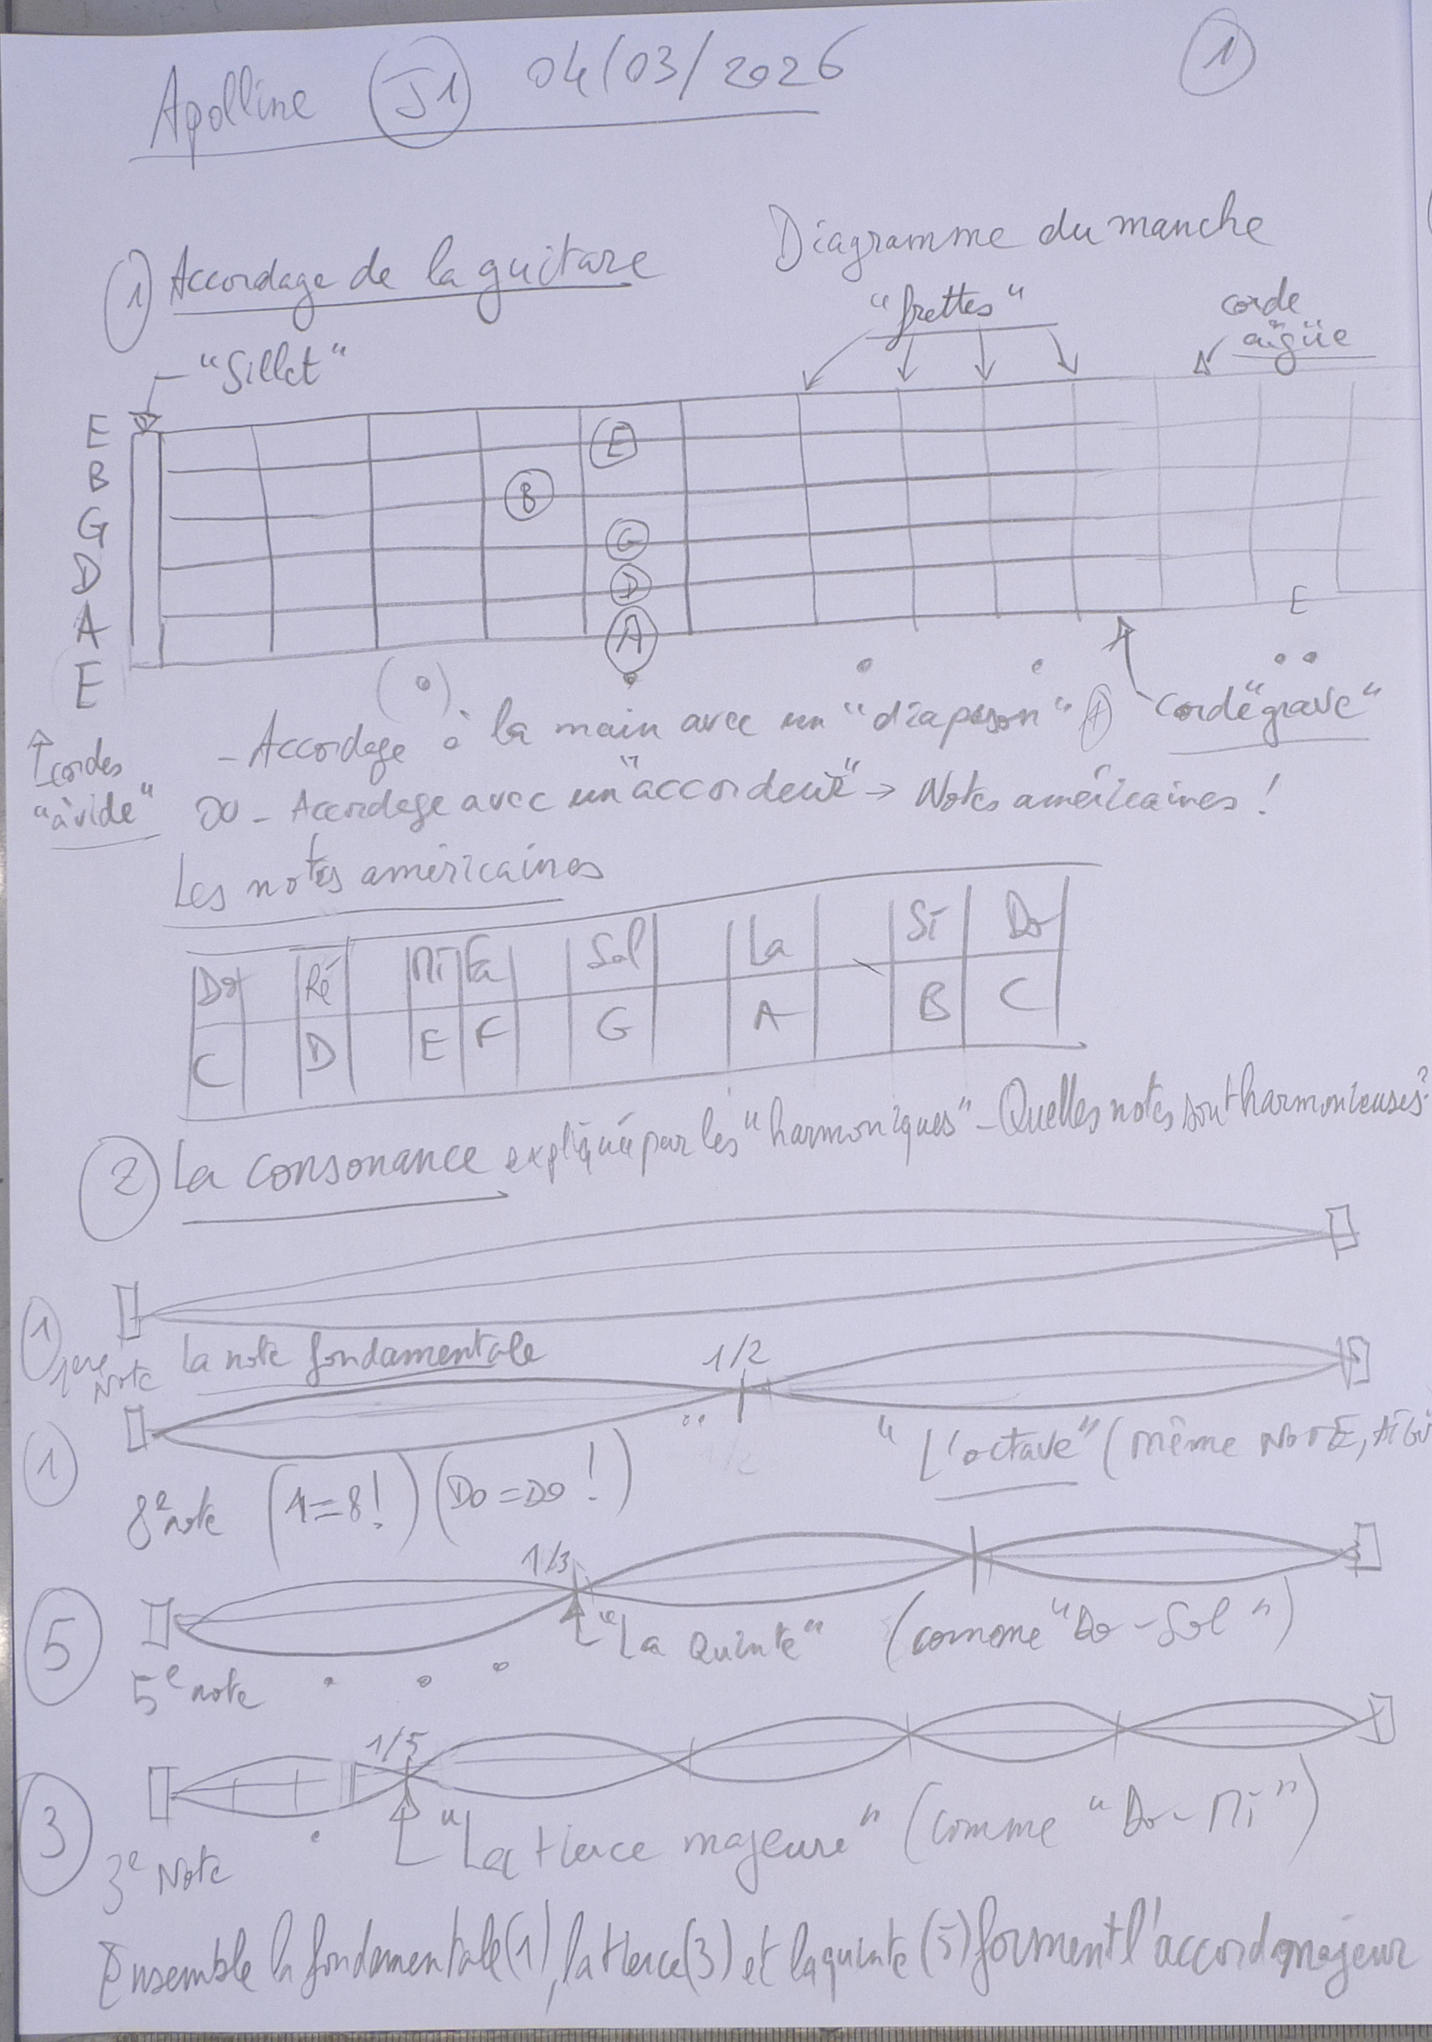 Apolline J1 04/03/2026
1
1 Accordage de la guitare
Diagramme du manche
"Sillet"
"frettes"
corde
aïgüe
E
B
G
D
A
E
E
B
G
D
A
E
cordes
"à vide"
corde "grave"
- Accordage à la main avec un "diapason"
OU - Accordage avec un "accordeur" → Notes américaines !
Les notes américaines
Do Ré Mi Fa Sol La Si Do
C D E F G A B C
2 La consonance expliquée par les "harmoniques" - Quelles notes sont harmonieuses?
1
1ère Note
La note fondamentale
1/2
1
8e note (1=8!) (Do=Do!)
"L'octave" (même NOTE,
1/3
5
5e note
"La Quinte" (comme "Do-Sol")
1/5
3
3e Note
"La tierce majeure" (comme "Do-Mi")
Ensemble la fondamentale(1), la tierce(3) et la quinte (5) forment l'accord majeur